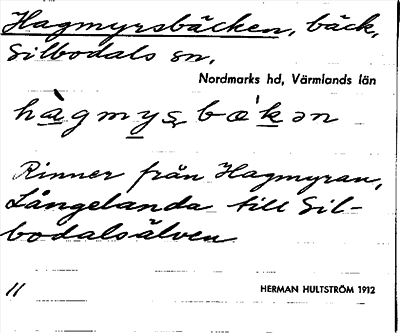 Hagmyrsbäcken, bäck,
Silbodals sn.
Nordmarks hd, Värmlands län
hàgmyṣbæ̀kən
Rinner från Hagmyran,
Långelanda till Sil-
bodalsälven
11
HERMAN HULTSTRÖM 1912